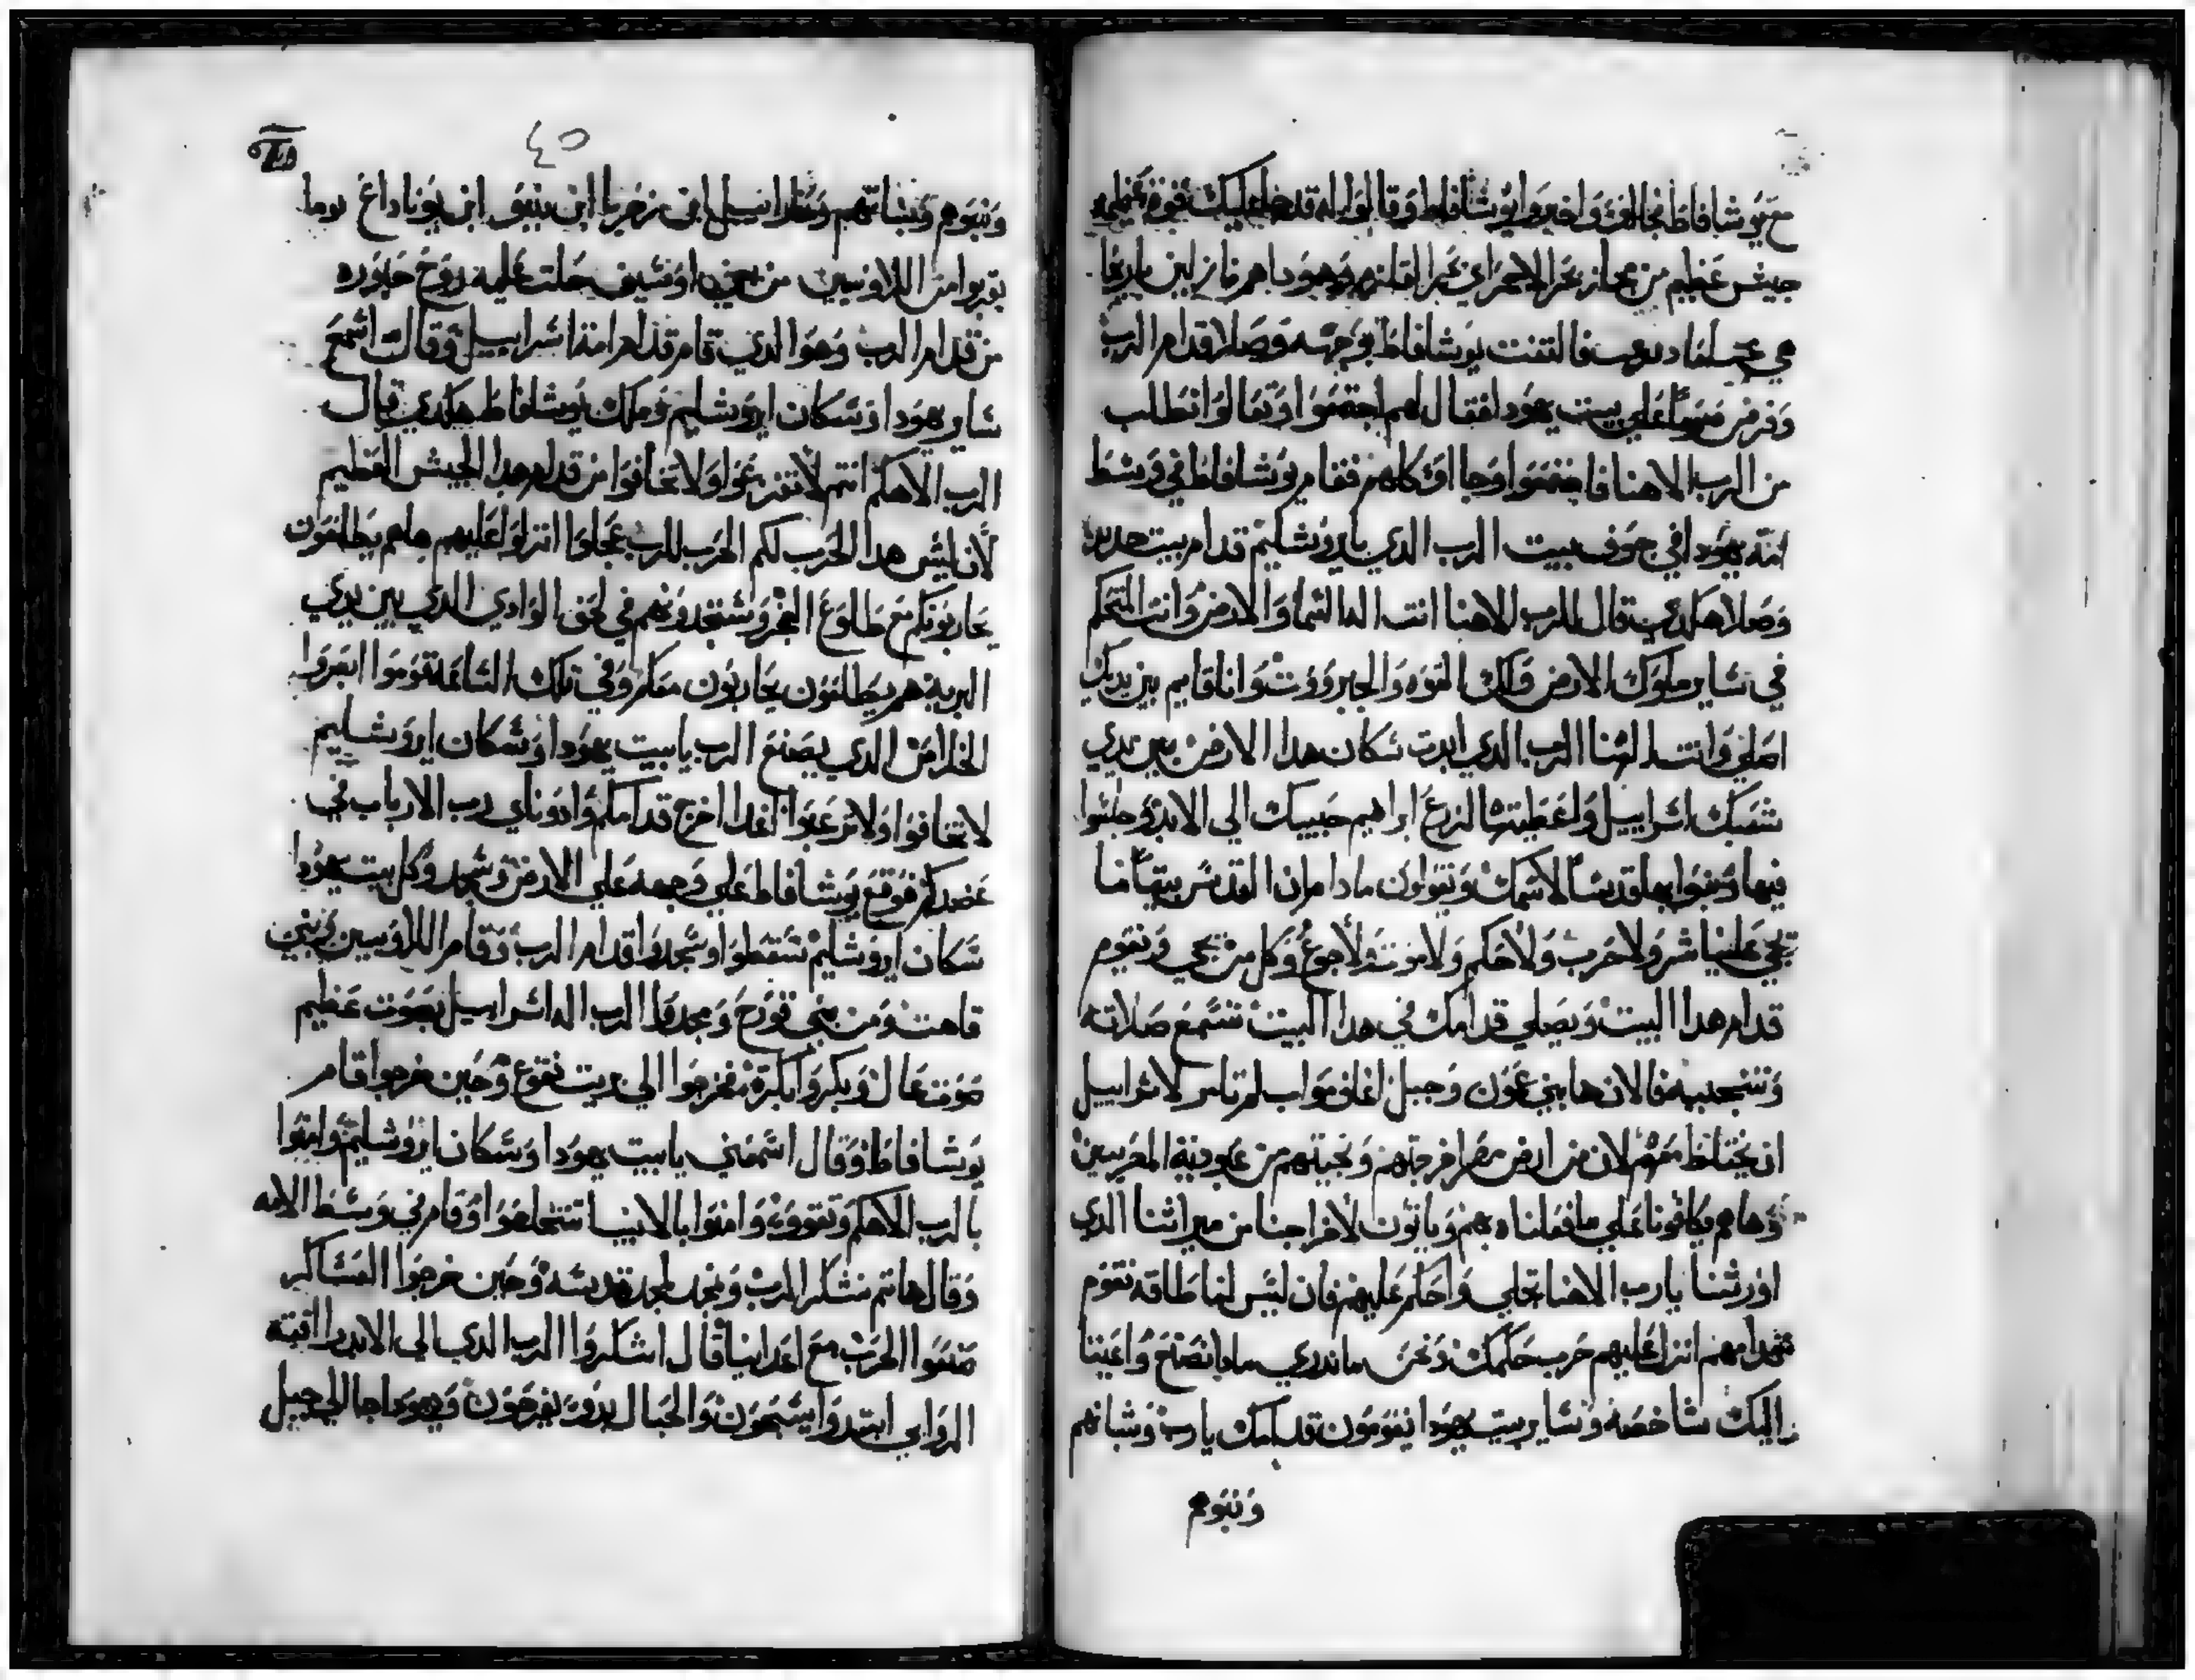 مع يوشافاط فجا الفرو واخبروا يوشافاط وقالوا له قد جا عليك قوة عظيمه
جيش عظيم من مجاز بحر الاحمر اي بحر القلزم وهودا هم نازلين باريحا
هي عين فالتفت يوشافاط بوجهه وصلا قدام الرب
وفرض صوما علي بيت يهودا فقال لهم اجتمعوا وتعالوا نطلب
من الرب الاهنا فاجتمعوا وجااو كلهم فقام يوشافاط في وسط
امة يهودا في جوف بيت الرب الدي بايروشليم قدام بيت جديد
وصلا هكدي قال للرب الاهنا انت اله السما والارض وانت المتحكم
في ساير ملوك الارض ولك القوه والجبرووت وانا قايم بين يديك
اصلي وانت الهنا الرب الدي ابدت سكان هدا الارض بين يدي
شعبك اسراييل واعطيتها لزرع ابراهيم حبيبك الي الابد وجلسوا
فيها وبنوا بها قدسا لاسمك ويقولون مادام ان القدس بيتهامنا
يجي علينا شر ولا حرب ولا حكم ولا موت ولا جوع وكل من يجي ويقوم
قدام هدا البيت ويصلي قدامك في هدا البيت تسمع صلاته
وتستجيبه فالان ها بني عمون وجبل اغان مواب لم تامر لاسراييل
ان يختلط معهم لان من ارض مصر اخرجتهم ونجيتهم من عبودية المصريين
وها هم يكافونا علي ما فعلناه بهم وياتون لاخراجنا من ميراثنا الدي
اورثتنا يارب الاهنا تجلي واحكم عليهم فان ليس لنا طاقه نقوم
قدامهم انزل عليهم حرب حكمك ونحن ما ندري مادا نصنع واعيننا
اليك شاخصه وساير بيت يهودا يقومون قدامك يارب وشبانهم
وبنوهم
٤٥
وبنوهم وبناتهم وعزاييل ابن زخريا ابن بنيو ابن يوناداع يوما
يقربوا من اللاويين من بني اوسيف حلت عليه روح حابوره
من قدام الرب وهوا الدي قام قدام امة اسراييل وقالت اسمع
ساير يهودا وسكان ايروشليم وملك يوشافاط هكدي قال
الرب الاهكم انتم لا تفزعوا ولا تخافوا من قدام هدا الجيش العظيم
لانا ليس هدا الحرب لكم الحرب للرب عجلوا انزلوا عليهم ها هم يطلعون
يحاربونكم مع طلوع الفجر وستجدونهم في لحق الوادي الدي بين يدي
البرية هم يطلعون يحاربون معكم وفي تلك الساعه تقوموا ابصروا
الخلاص الدي يصنع الرب يا بيت يهودا وسكان ايروشليم
لا تخافوا ولا ترعبوا غدا اخرج قدامكم وادوناي رب الارباب في
عضدكم فوقع يوشافاط علي وجهه علي الارض وسجد وكل بيت يهودا
سكان ايروشليم سقطوا وسجدوا قدام الرب وقام اللاويين بني
قاهت ومن بني قورح ومجدوا الرب اله اسراييل بصوت عظيم
صوت عال وبكروا باكرة وخرجوا الي بريت تقوع وحين خرجوا قام
يوشافاط وقال اسمعني يا بيت يهودا وسكان ايروشليم واتبوا
بالرب الاهكم وتقووه وامنوا بالانبيا تتخلصوا وقام في وسط الامه
وقال هاتم نشكر الرب ونمجد لمجد قدسه وحين خرجوا العساكر
صنعوا الحرب مع اعداينا قال اشكروا الرب الدي الي الابد رافته
الروابي ابتدوا يسبحون والجبال بدو يفرحون وهودا جا الي جبل